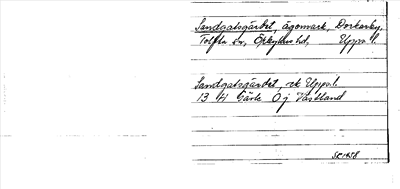 Sandgatsgärdet, ägomark, Dorkarby,
Tolfta sn, Örbyhus hd, Upps. l.
Sandgatsgärdet, ek Upps. l.
13 H Gävle 0 j Västland